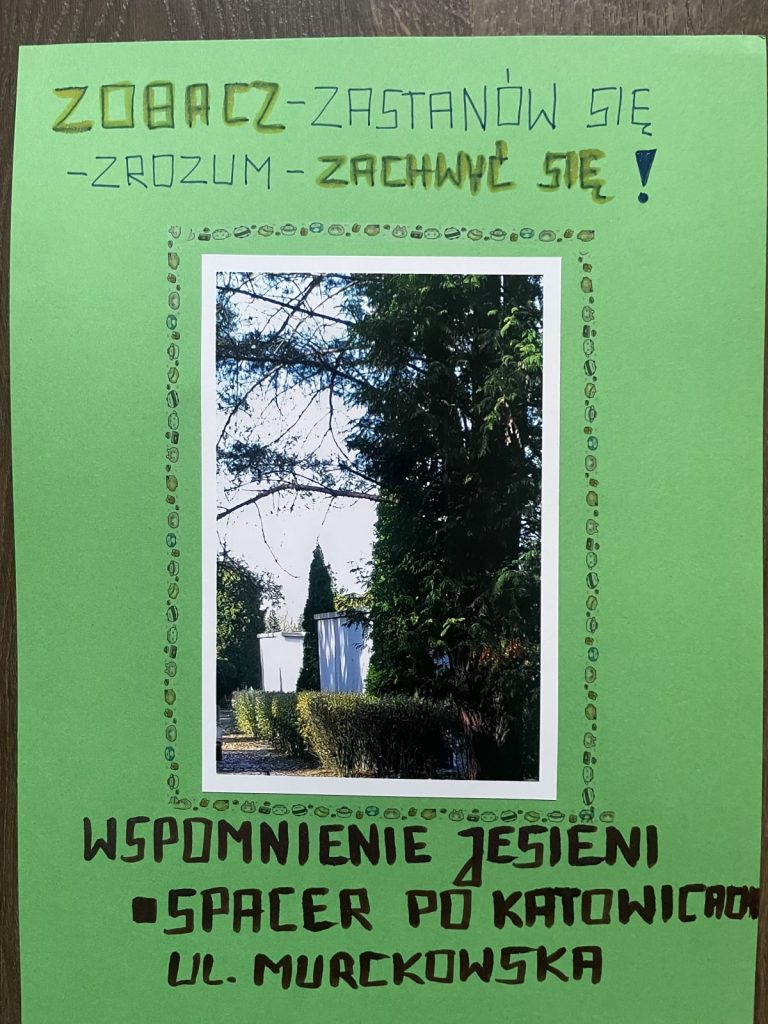 ZOBACZ-ZASTANÓW SIĘ
-ZROZUM-ZACHWYĆ SIĘ!
WSPOMNIENIE JESIENI
▪SPACER PO KATOWICACH
UL. MURCKOWSKA